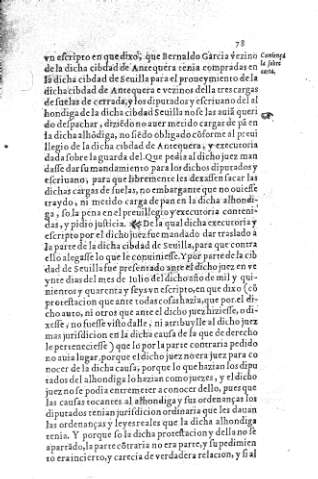 78
vn escripto en que dixo, que Bernaldo Garcia vezino
de la dicha cibdad de Antequera tenia compradas en
la dicha cibdad de Seuilla para el proueymiento de la
dicha cibdad de Antequera e vezinos della tres cargas
de suelas de cerrada, y los diputados y escriuano del al
hondiga de la dicha cibdad de Seuilla no se las auiā queri
do despachar, diziēdo no auer metido cargas de pā en
la dicha alhōdiga, no siēdo obligado cōforme al preui
llegio de la dicha cibdad de Antequera, y executoria
dada sobre la guarda del. Que pedia al dicho juez man
dasse dar su mandamiento para los dichos diputados y
escriuano, para que libremente les dexassen sacar las
dichas cargas de suelas, no embargante que no ouiesse
traydo, ni metido carga de pan en la dicha alhondi-
ga, so la pena en el preuillegio y executoria conteni-
das, y pidio justicia. De la qual dicha executoria y
escripto por el dicho juez fue mandado dar traslado à
la parte de la dicha cibdad de Seuilla, para que contra
ello alegasse lo que le conuiniesse. Y por parte de la cib
dad de Seuilla fue presentado ante el dicho juez en ve
ynte dias del mes de Iulio del dicho año de mil y qui-
nientos y quarenta y seys vn escripto, en que dixo (cō
protestacion que ante todas cosas hazia, que por el di-
cho auto, ni otros que ante el dicho juez hiziesse, o di-
xesse, no fuesse visto dalle, ni atribuylle al dicho juez
mas jurisdicion en la dicha causa de la que de derecho
le perteneciesse) que lo por la parte contraria pedido
no auia lugar, porque el dicho juez no era juez para co
nocer de la dicha causa, porque lo que hazian los dipu
tados del alhondiga lo hazian como juezes, y el dicho
juez no se podia entremeter a conocer dello, pues que
las causas tocantes al alhondiga y sus ordenanças los
diputados tenian jurisdicion ordinaria que les dauan
las ordenanças y leyes reales que la dicha alhondiga
tenia. Y porque so la dicha protestacion y della no se
apartādo, la parte cōtraria no era parte, y su pedimien
to era incierto, y carecia de verdadera relacion, y si al
Comiença
la sobre
carta.